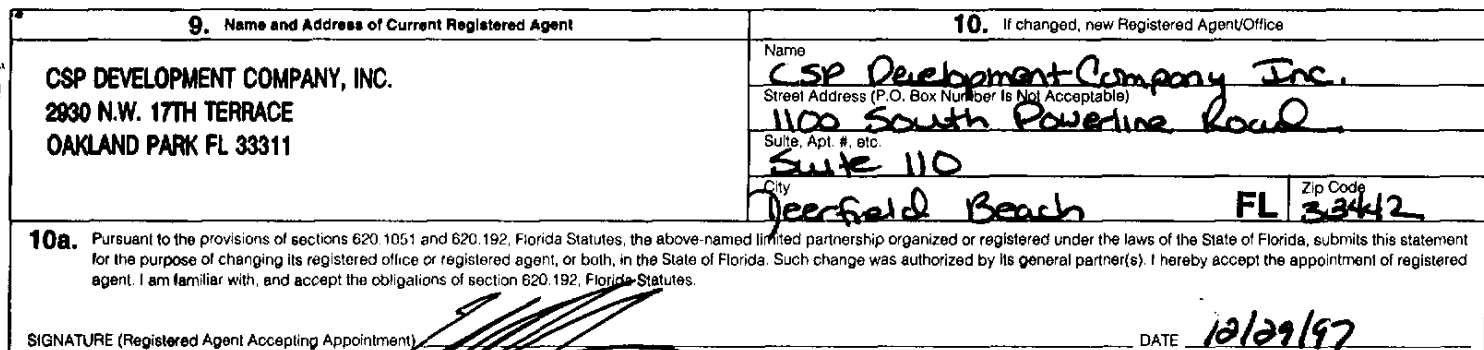 9. Name and Address of Current Registered Agent
CSP DEVELOPMENT COMPANY, INC.
2930 N.W. 17TH TERRACE
OAKLAND PARK FL 33311
10. If changed, new Registered Agent/Office
Name
CSP Development Company Inc.
Street Address (P.O. Box Number Is Not Acceptable)
1100 South Powerline Road
Suite, Apt. #, etc.
Suite 110
City
Deerfield Beach FL
Zip Code
33442
10a. Pursuant to the provisions of sections 620.1051 and 620.192, Florida Statutes, the above-named limited partnership organized or registered under the laws of the State of Florida, submits this statement
for the purpose of changing its registered office or registered agent, or both, in the State of Florida. Such change was authorized by its general partner(s). I hereby accept the appointment of registered
agent. I am familiar with, and accept the obligations of section 620.192, Florida Statutes.
SIGNATURE (Registered Agent Accepting Appointment) DATE 12/29/97